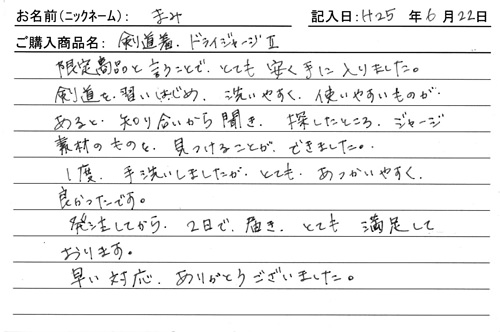 お名前(ニックネーム): まみ 記入日:H25 年 6 月 22 日
ご購入商品名: 剣道着、ドライジャージⅡ
限定商品と言うことで、とても 安く手に入りました。
剣道を、習いはじめ、洗いやすく、使いやすいものが、
あると、知り合いから聞き、探したところ、ジャージ
素材のものを、見つけることが、できました。
1度、手洗いしましたが、とても、あつかいやすく、
良かったです。
発注してから、2日で、届き、とても 満足して
おります。
早い対応、ありがとうございました。